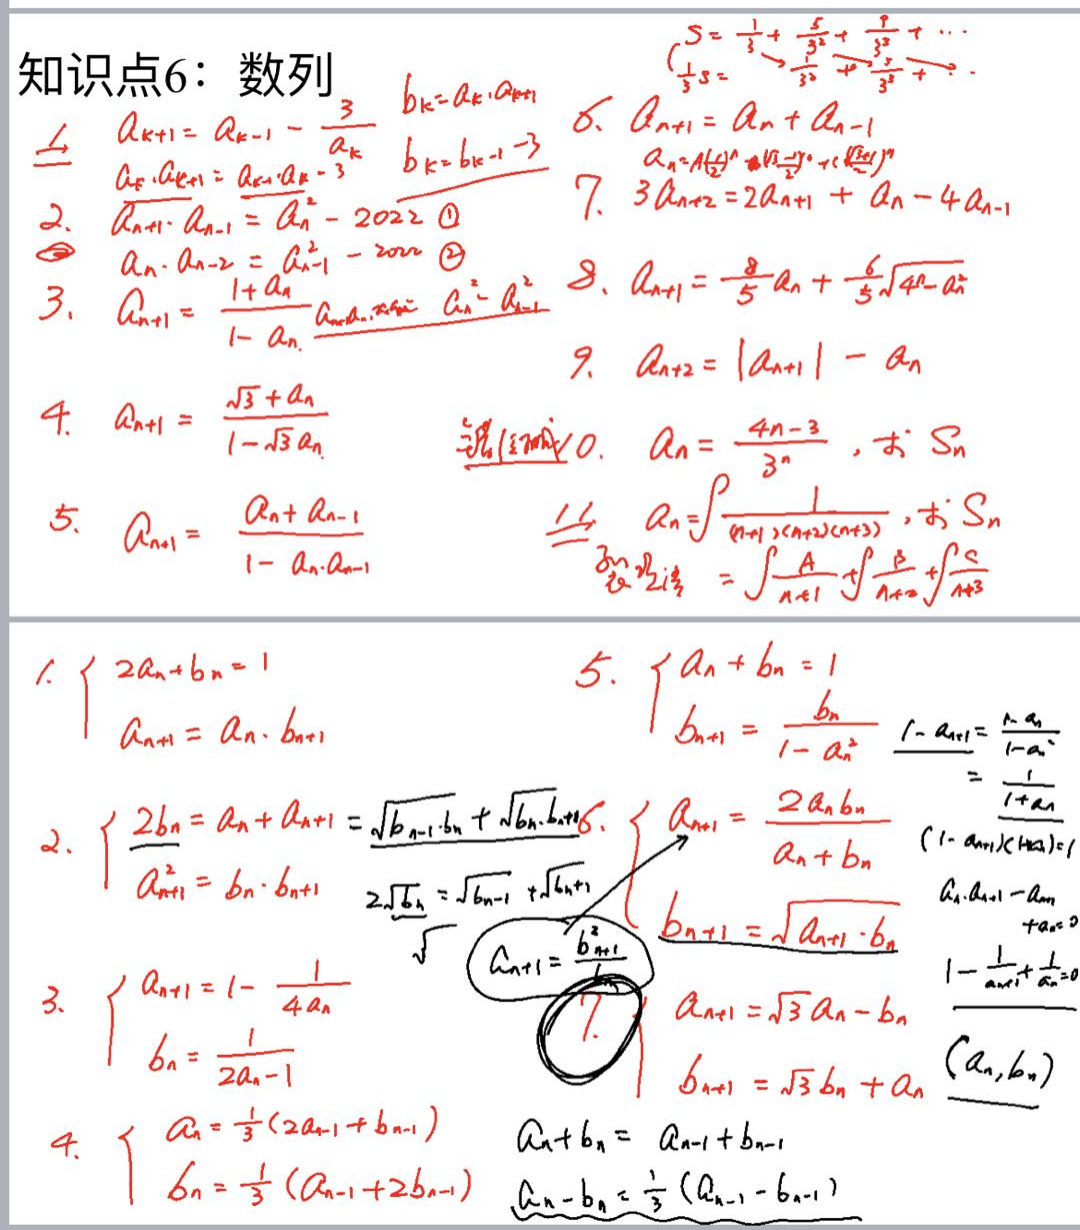 知识点6：数列
S = 1/3 + 5/3² + 9/3³ + ⋯
1/3 S = 1/3² + 5/3³ + ⋯
1. aₖ₊₁ = aₖ₋₁ − 3/aₖ
bₖ = aₖ·aₖ₊₁
aₖ·aₖ₊₁ = aₖ₋₁·aₖ − 3
bₖ = bₖ₋₁ − 3
2. aₙ₊₁·aₙ₋₁ = aₙ² − 2022 ①
aₙ·aₙ₋₂ = aₙ₋₁² − 2022 ②
3. aₙ₊₁ = (1 + aₙ)/(1 − aₙ)
aₙ² − aₙ₋₁²
4. aₙ₊₁ = (√3 + aₙ)/(1 − √3 aₙ)
5. aₙ₊₁ = (aₙ + aₙ₋₁)/(1 − aₙ·aₙ₋₁)
6. aₙ₊₁ = aₙ + aₙ₋₁
7. 3aₙ₊₂ = 2aₙ₊₁ + aₙ − 4aₙ₋₁
8. aₙ₊₁ = 8/5 aₙ + 6/5 √(4ⁿ − aₙ²)
9. aₙ₊₂ = |aₙ₊₁| − aₙ
10. aₙ = (4n − 3)/3ⁿ，求 Sₙ
11. aₙ = ∫ 1/((n+1)(n+2)(n+3))，求 Sₙ
= ∫ A/(n+1) + ∫ B/(n+2) + ∫ C/(n+3)
1. { 2aₙ + bₙ = 1
aₙ₊₁ = aₙ·bₙ₊₁
2. { 2bₙ = aₙ + aₙ₊₁ = √(bₙ₋₁·bₙ) + √(bₙ·bₙ₊₁)
aₙ₊₁² = bₙ·bₙ₊₁
2√bₙ = √bₙ₋₁ + √bₙ₊₁
√
3. { aₙ₊₁ = 1 − 1/(4aₙ)
bₙ = 1/(2aₙ − 1)
4. { aₙ = 1/3 (2aₙ₋₁ + bₙ₋₁)
bₙ = 1/3 (aₙ₋₁ + 2bₙ₋₁)
aₙ + bₙ = aₙ₋₁ + bₙ₋₁
aₙ − bₙ = 1/3 (aₙ₋₁ − bₙ₋₁)
5. { aₙ + bₙ = 1
bₙ₊₁ = bₙ/(1 − aₙ²)
1 − aₙ₊₁ = (1 − aₙ)/(1 − aₙ²)
= 1/(1 + aₙ)
(1 − aₙ₊₁)(1 + aₙ) = 1
aₙ·aₙ₊₁ − aₙ
+ aₙ = 0
1 − 1/aₙ₊₁ + 1/aₙ = 0
6. { aₙ₊₁ = 2aₙbₙ/(aₙ + bₙ)
bₙ₊₁ = √(aₙ₊₁·bₙ)
aₙ₊₁ = b²ₙ₊₁/bₙ
7. { aₙ₊₁ = √3 aₙ − bₙ
bₙ₊₁ = √3 bₙ + aₙ
(aₙ, bₙ)